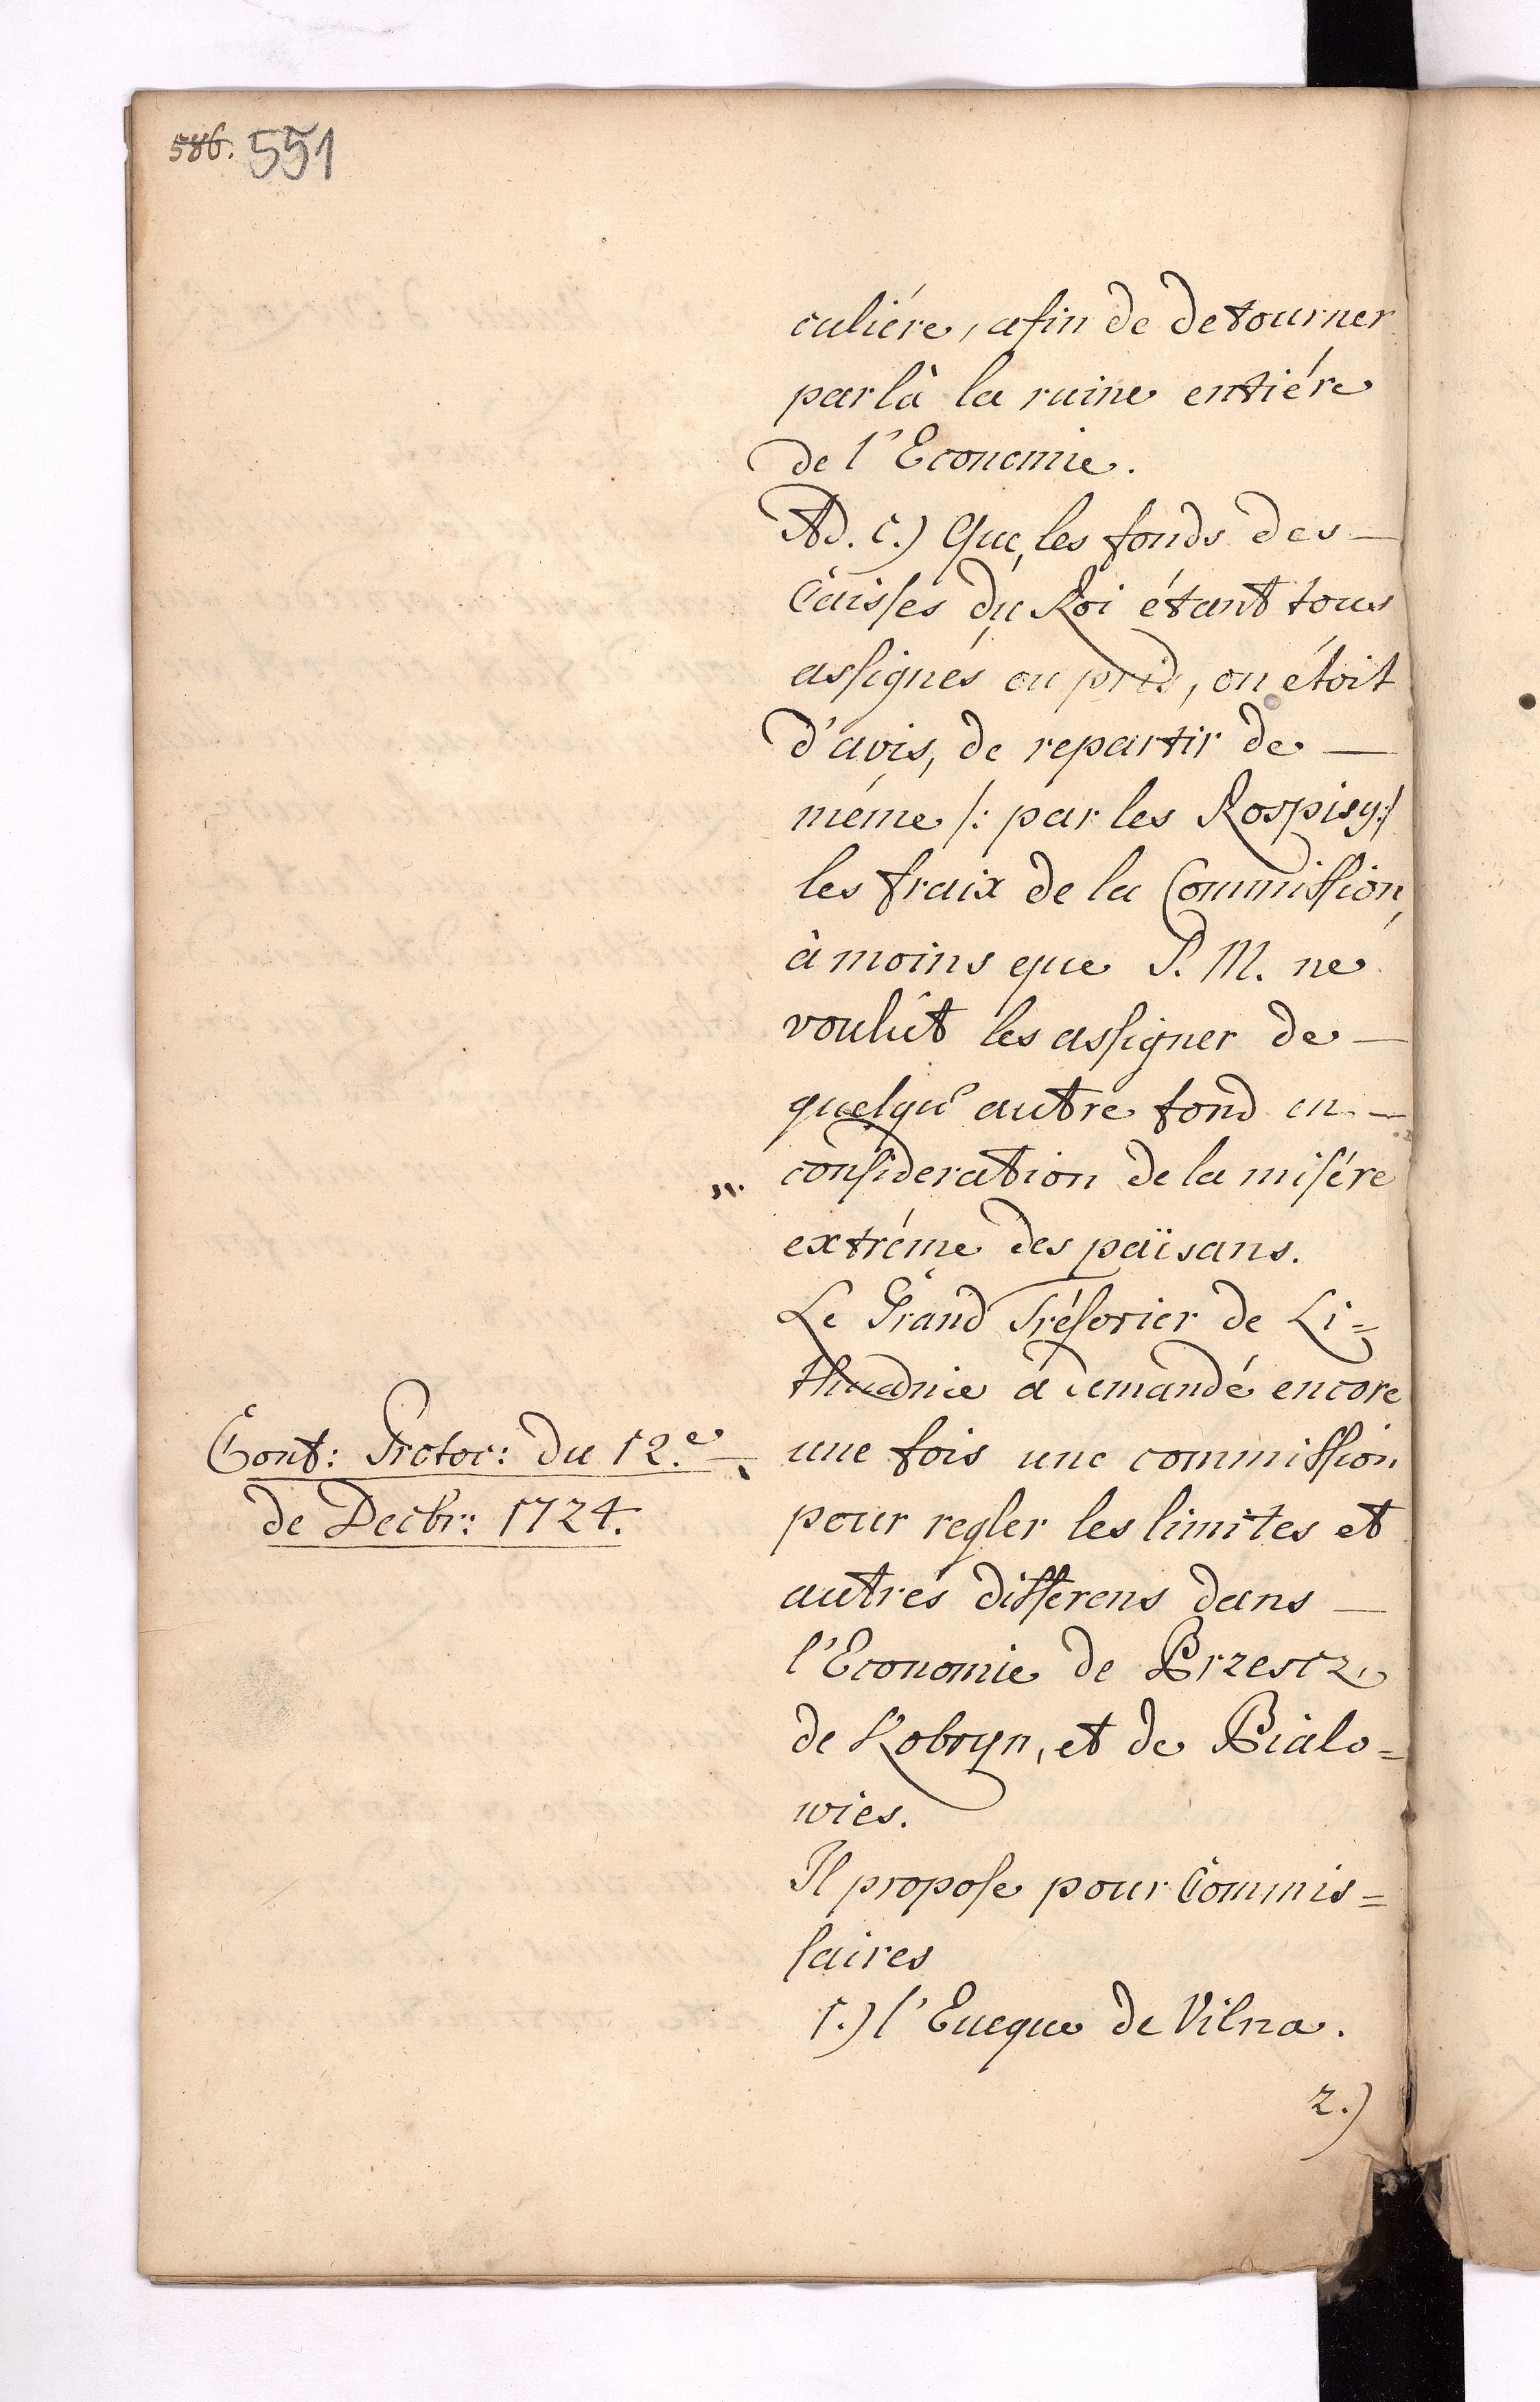 586. 551
culiére, afin de detourner
par là la ruine entiére
de l'Economie.
Ad. c.) Que, les fonds des —
Caisses du Roi étant tous
assignés ou pris, on étoit
d'avis, de repartir de —
méme /: par les Rospisy :/
les fraix de la Commission,
à moins que S. M. ne
voulût les assigner de —
quelqu' autre fond en —
consideration de la misére
extréme des païsans.
Le Grand Trésorier de Li=
thuanie a demandé encore
Cont: Protoc: du 12.e
de Decbr: 1724.
une fois une commission
pour regler les limites et
autres differens dans —
l'Economie de Brzescz,
de Kobryn, et de Bialo=
wies.
Il propose pour Commis=
saires
1.) l'Eveque de Vilna.
2.)